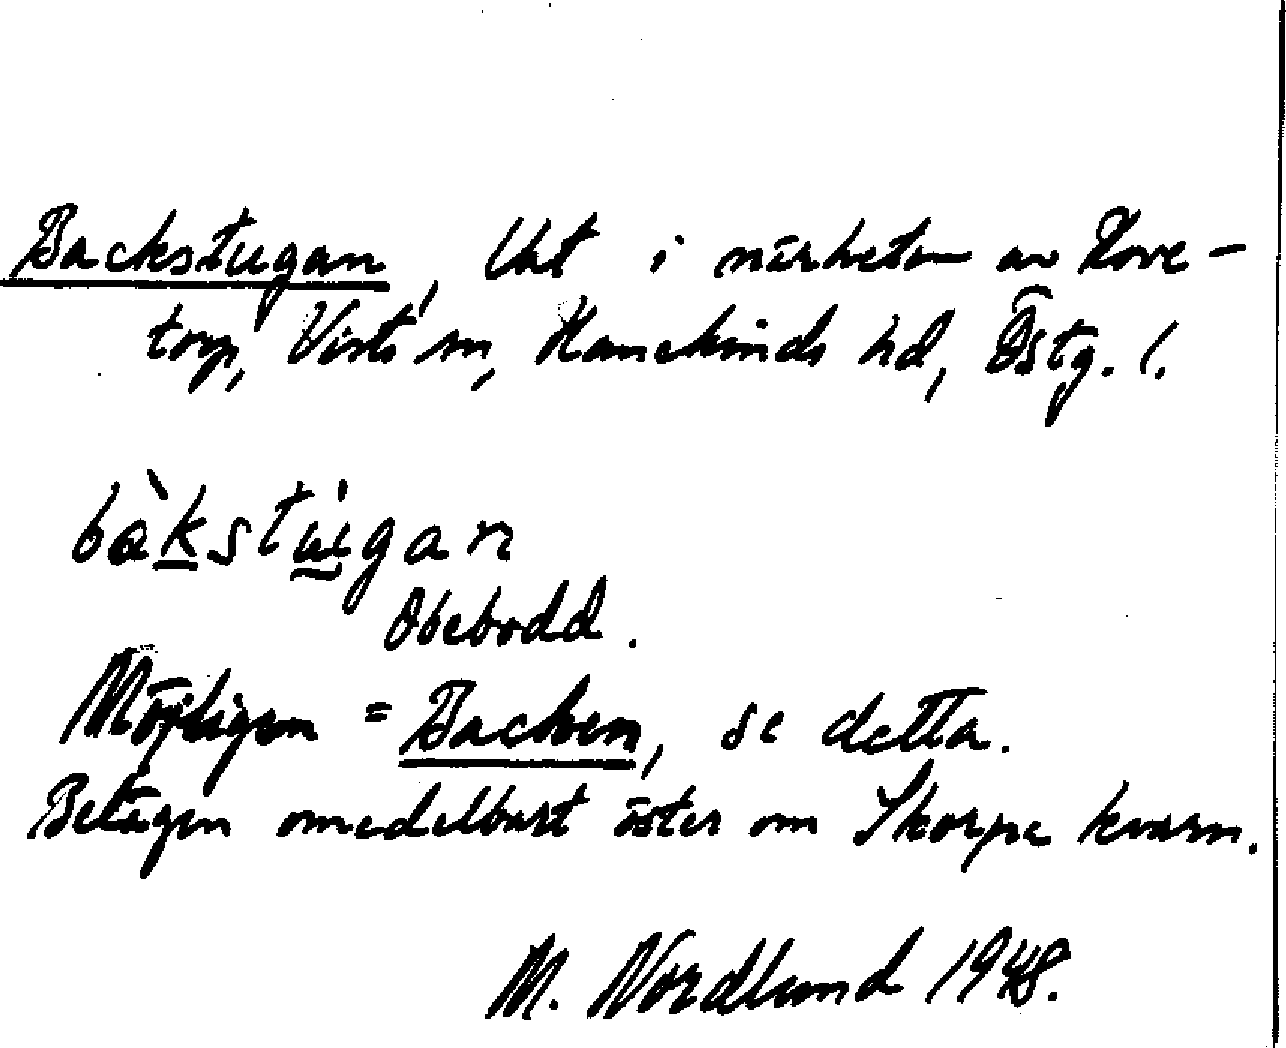 Backstugan, lht i närheten av Hove-
torp, Vists sn, Hanekinds hd, Östg. l.
bàkstu̇gan
Obebodd.
Möjligen = Backen, se detta.
Belägen omedelbart öster om Skorpe kvarn.
M. Nordlund 1948.